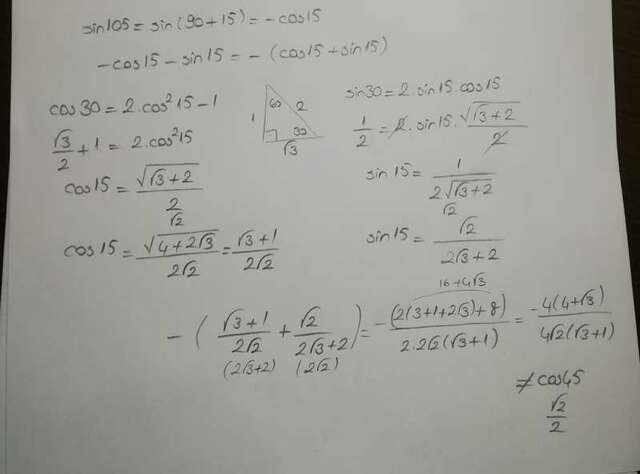 sin105 = sin(90+15) = -cos15
-cos15 - sin15 = -(cos15 + sin15)
cos30 = 2.cos²15 - 1
√3/2 + 1 = 2.cos²15
cos15 = √(√3+2)/2
√2
cos15 = √(4+2√3)/2√2 = √3+1/2√2
60 2
1
30
√3
sin30 = 2.sin15.cos15
1/2 = 2.sin15.√(√3+2)/2
sin15 = 1/2√(√3+2)
√2
sin15 = √2/2√3+2
16+4√3
-(√3+1/2√2 + √2/2√3+2) = -(2(3+1+2√3)+8)/2.2√2(√3+1) = -4(4+√3)/4√2(√3+1)
(2√3+2) (2√2)
≠cos45
√2/2